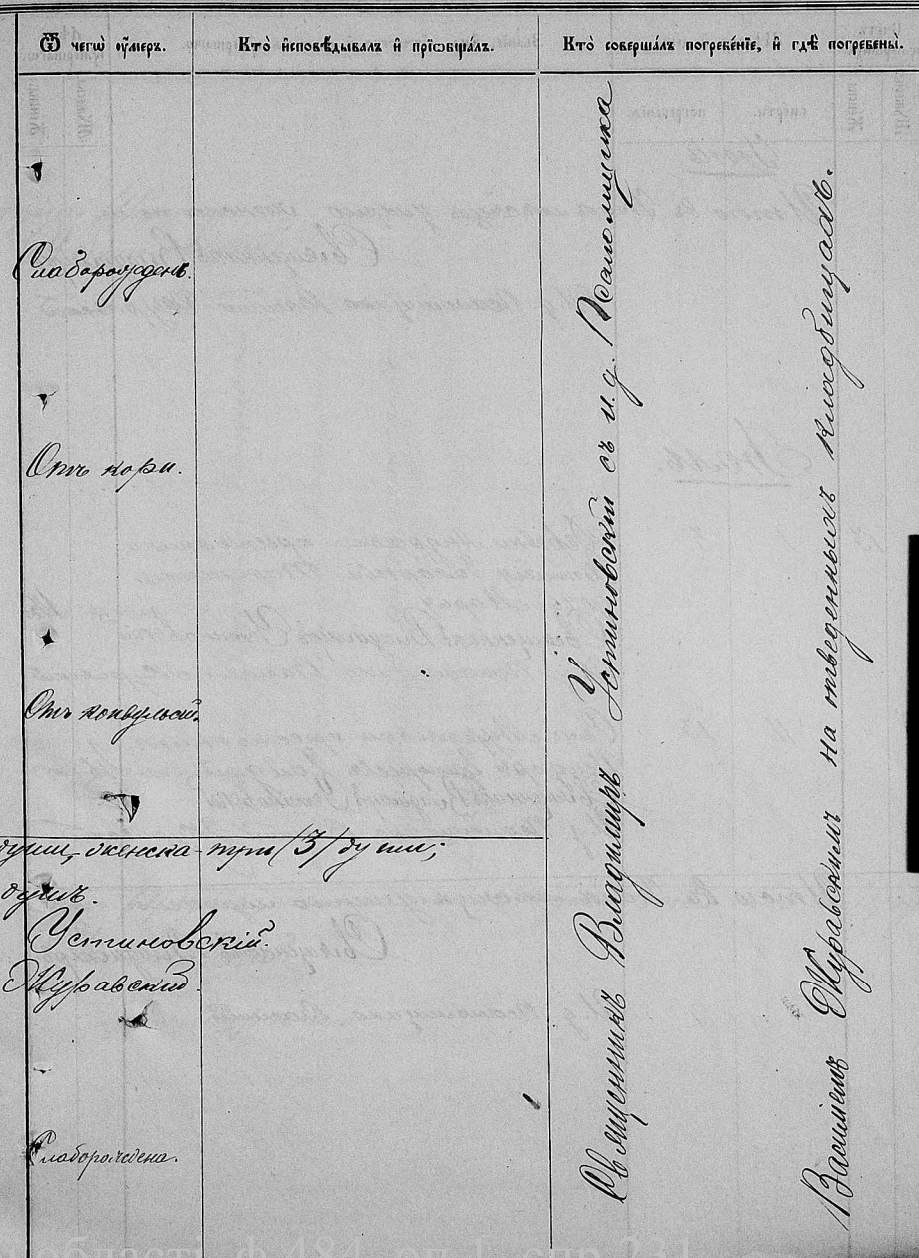 Ѿ чегѡ ᲂу҆́меръ.
Кто̀ и҆сповѣ́дывалъ и҆ прїѡбща́лъ.
Кто̀ соверша́лъ погребе́нїе, и҆ гдѣ̀ погребены̀.
Слаборожденъ.
Отъ кори.
Отъ конвульсій.
душъ, женска - три (3) души;
душъ.
Устиновскій.
Журавскій.
Слаборождена.
Священникъ Владиміръ Устиновскій съ и. д. Псаломщика
Василіемъ Журавскимъ на отведенныхъ кладбищахъ.